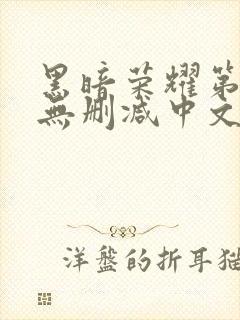 黑暗荣耀第
無删减中文
洋盤的折耳猫